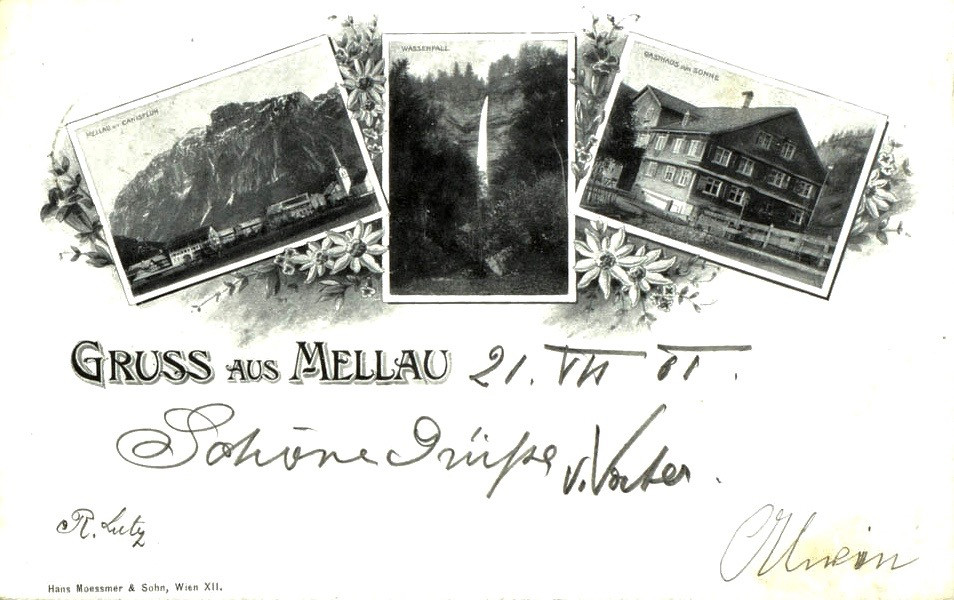 MELLAU mit CANISFLUH
WASSERFALL
GASTHAUS zur SONNE
GRUSS AUS MELLAU 21. VII 01.
Schöne Grüße v. Vater.
R. Lutz
Hans Moessmer & Sohn, Wien XII.